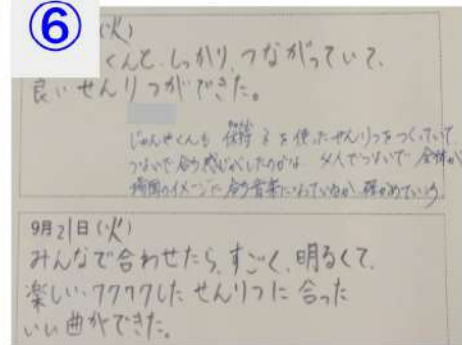 ⑥
(火)
くんと、しっかり、つながっていて、
良いせんりつができた。
じゅんやくんも 保持 を使ったせんりつをつくっていて
つないで合う感じがしたのかな 4人でつないで 全体が
場面のイメージに合う音楽になっているか 確かめていこう
9月21日(火)
みんなで合わせたら、すごく、明るくて、
楽しい、ワクワクした せんりつに 合った
いい曲ができた。